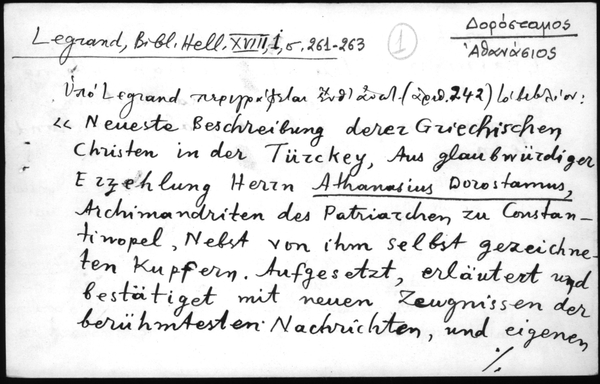 Legrand, Bibl. Hell. XVIII, 1, σ. 261-263
①
Δορόσταμος
Ἀθανάσιος
Ὑπό Legrand περιγράφεται (ἀριθ. 242) βιβλίον:
« Neueste Beschreibung derer Griechischen
Christen in der Türckey, Aus glaubwürdiger
Erzehlung Herrn Athanasius Dorostamus,
Archimandriten des Patriarchen zu Constan-
tinopel, Nebst von ihm selbst gezeichne-
ten Kupfern. Aufgesetzt, erläutert und
bestätiget mit neuen Zeugnissen der
berühmtesten Nachrichten, und eigenen
./.